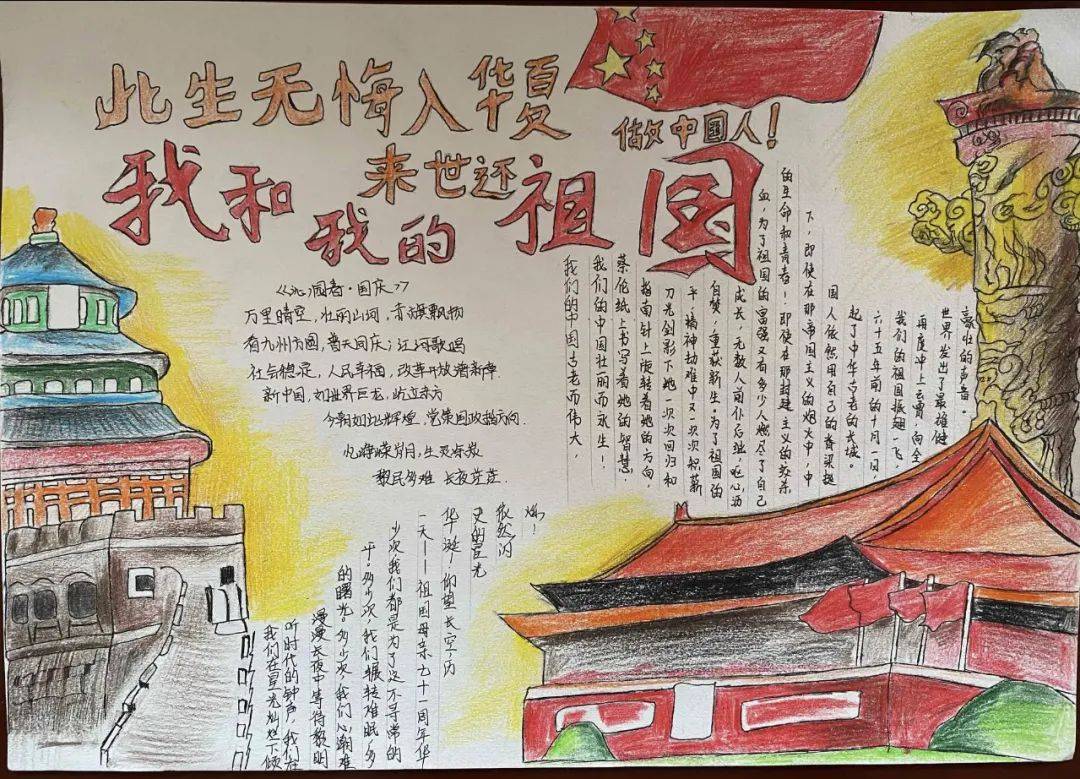 此生无悔入华夏
来世还做中国人！
我和我的祖国
《沁园春·国庆》
万里晴空，壮丽山河，赤旗飘扬
看九州方圆，普天同庆；江河歌唱
社会稳定，人民幸福，改革开放谱新章
新中国，如世界巨龙，屹立东方
今朝如此辉煌，党策国政指方向.
忆峥嵘岁月，生灵涂炭
黎民多难 长夜茫茫.
我们的中国古老而伟大，
我们的中国壮丽而永生！
蔡伦纸上书写着她的智慧，
指南针上旋转着她的方向
刀光剑影下她一次次回归和
平，精神劫难中又次次积薪
自焚，重获新生。为了祖国的
成长，无数人前仆后继，呕心沥
血，为了祖国的富强又有多少人燃尽了自己
的生命和青春！即使在那封建主义的绞杀
下，即使在那帝国主义的炮火中，中
国人依然用自己的脊梁挺
起了中华古老的长城。
六十五年前的十月一日，
我们的祖国振翅一飞，
再度冲上云霄，向全
世界发出了最雄健
豪壮的声音。
我们在星光灿烂下倾
听时代的钟声，我们在
漫漫长夜中等待黎明
的曙光。多少次，我们心潮难
平！多少次，我们辗转难眠，多
少次，我们都是为了这不寻常的
一天——祖国母亲七十一周年华
华诞！仰望长空，历
史的星光
依然闪
烁！